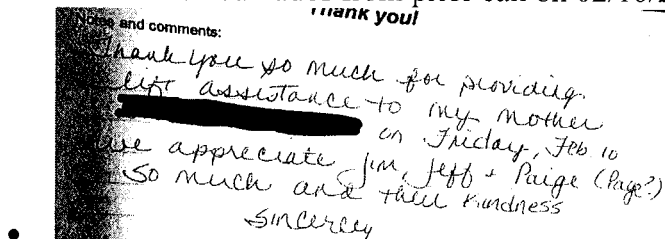 from prior call on 02/10/
Thank you!
Notes and comments:
Thank you so much for providing
lift assistance to my mother
on Friday, Feb 10
We appreciate Jim, Jeff + Paige (Page?)
so much and their kindness
Sincerely